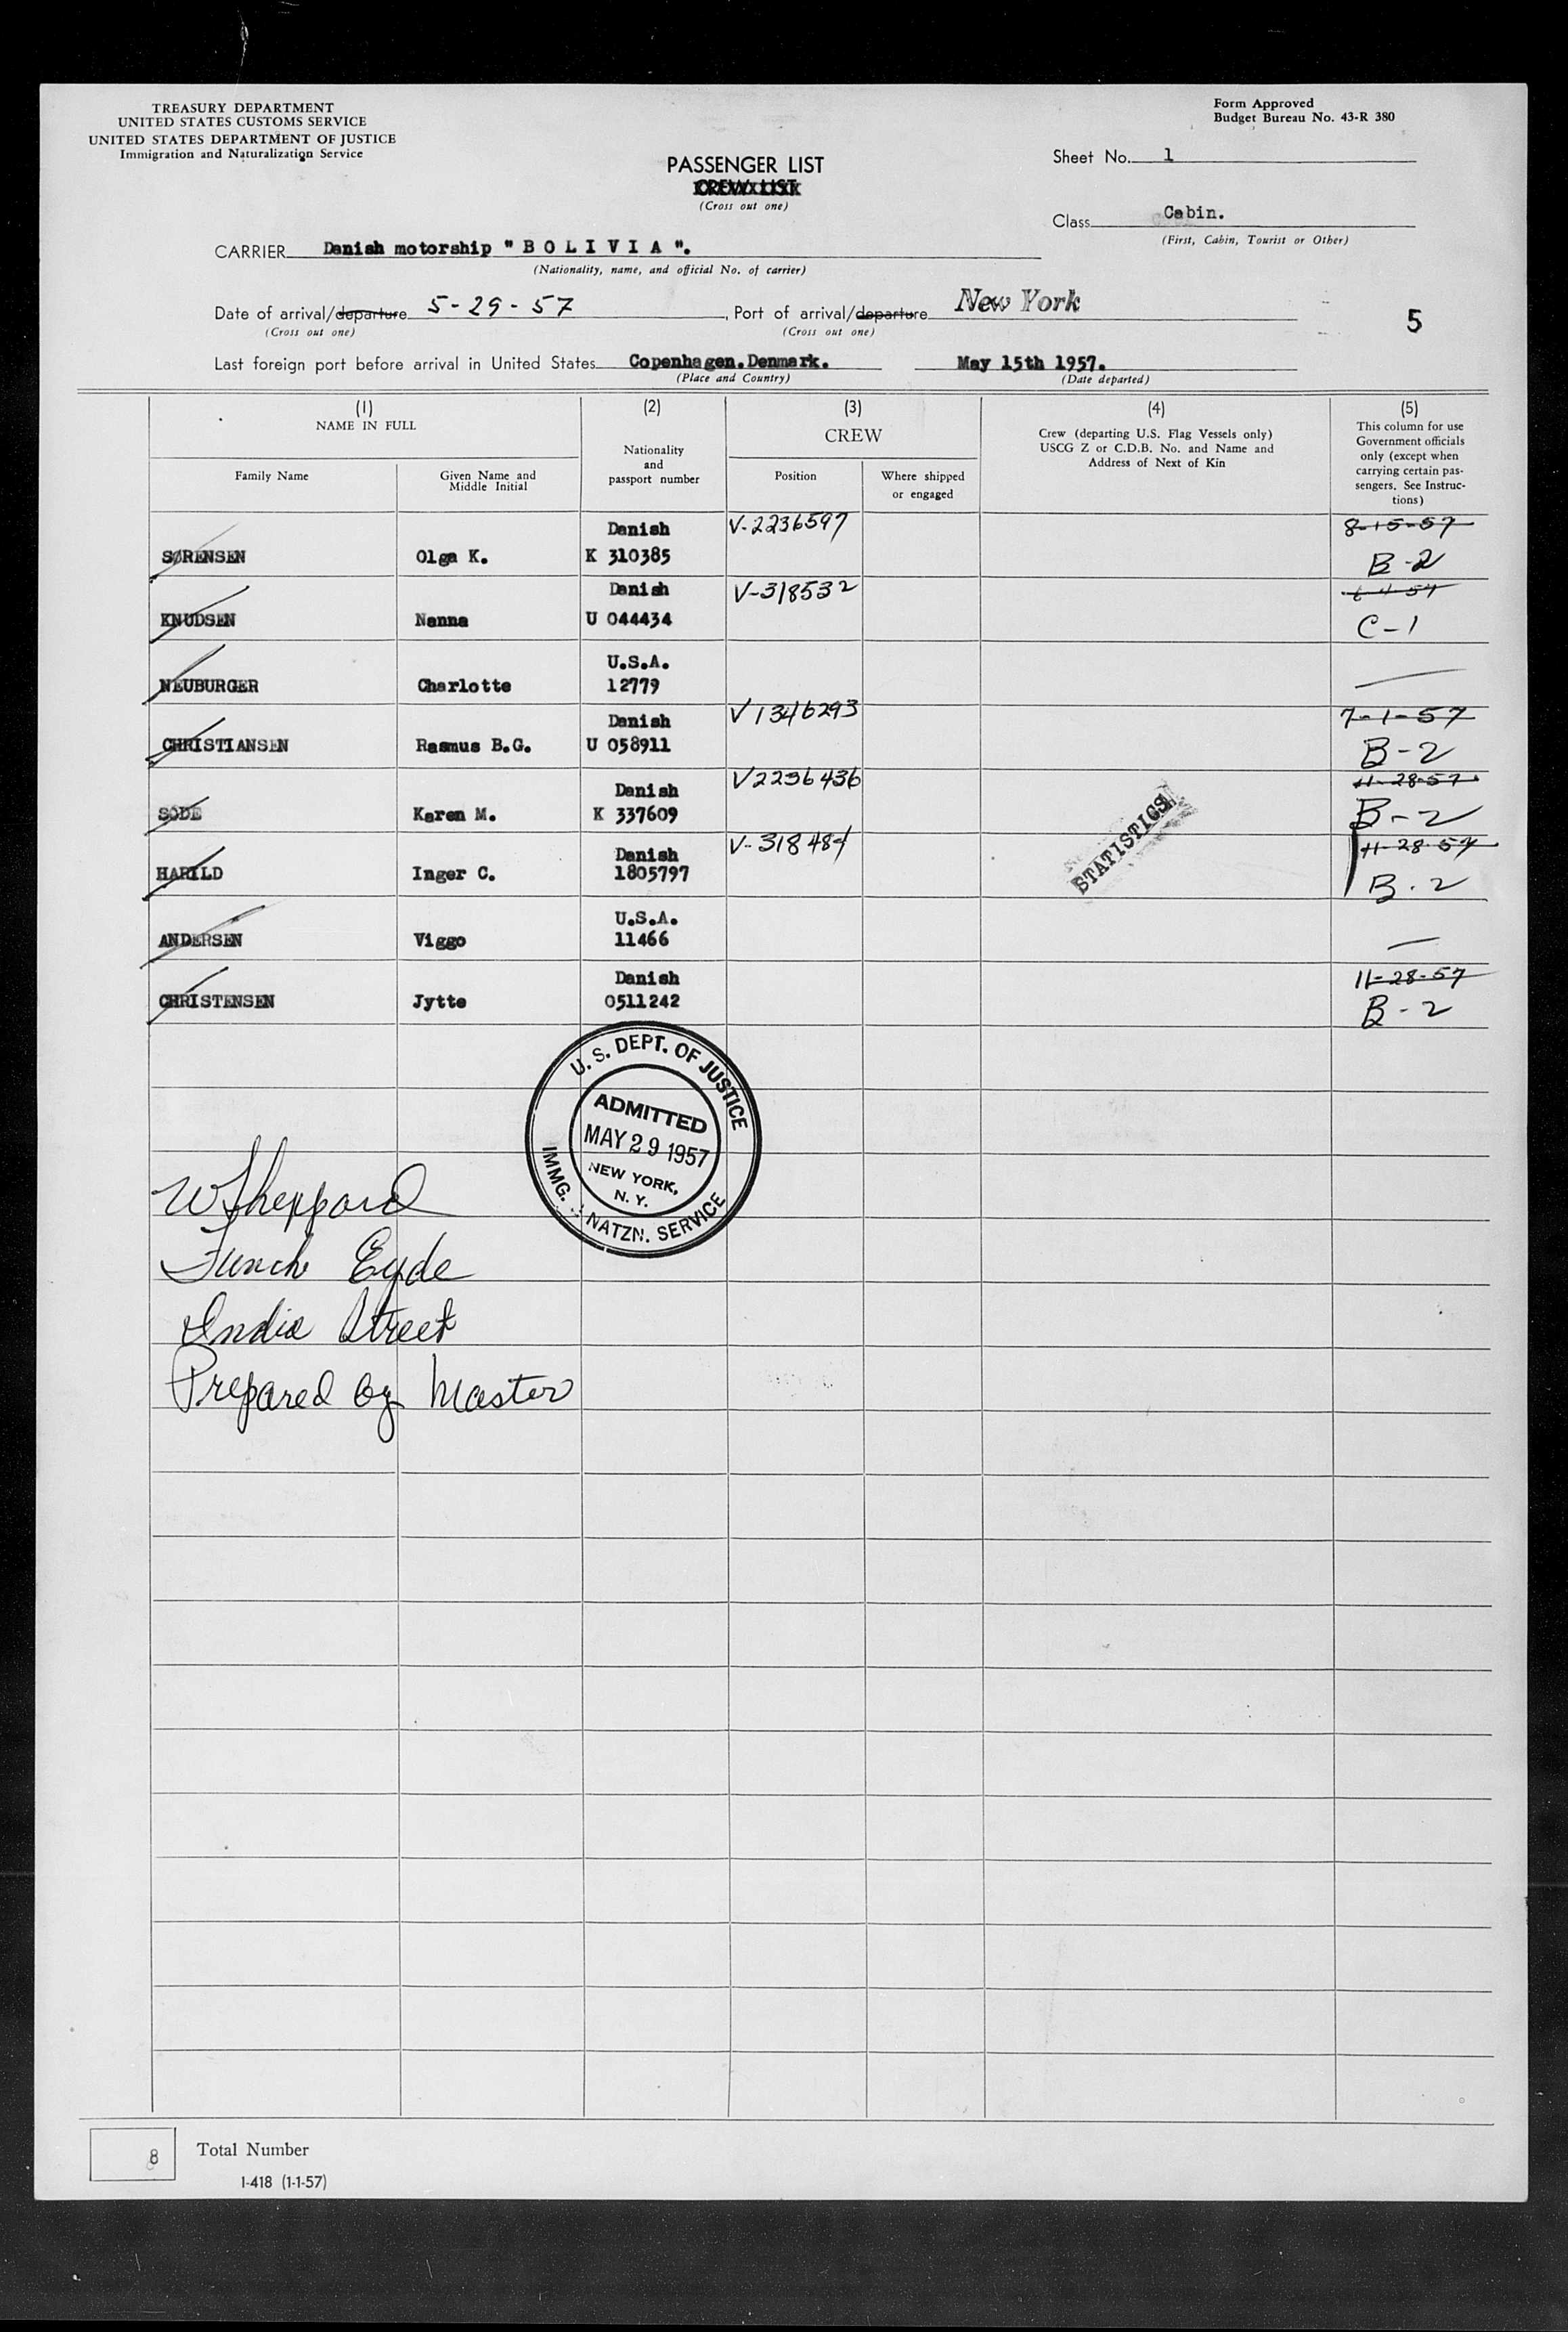 TREASURY DEPARTMENT
UNITED STATES CUSTOMS SERVICE
UNITED STATES DEPARTMENT OF JUSTICE
Immigration and Naturalization Service
Form Approved
Budget Bureau No. 43-R 380
PASSENGER LIST
CREW LIST
(Cross out one)
Sheet No. 1
Class Cabin.
(First, Cabin, Tourist or Other)
CARRIER Danish motorship "B O L I V I A".
(Nationality, name, and official No. of carrier)
Date of arrival/departure 5-29-57, Port of arrival/departure New York
(Cross out one) (Cross out one)
5
Last foreign port before arrival in United States Copenhagen.Denmark. May 15th 1957.
(Place and Country) (Date departed)
(1) (2) (3) (4) (5)
NAME IN FULL
Family Name
Given Name and
Middle Initial
Nationality
and
passport number
CREW
Position
Where shipped
or engaged
Crew (departing U.S. Flag Vessels only)
USCG Z or C.D.B. No. and Name and
Address of Next of Kin
This column for use
Government officials
only (except when
carrying certain pas-
sengers. See Instruc-
tions)
Danish V-2236597 8-15-57
SØRENSEN Olga K. K 310385 B-2
Danish V-318532
KNUDSEN Nanna U 044434 C-1
U.S.A.
NEUBURGER Charlotte 12779
Danish V1346293 7-1-57
CHRISTIANSEN Rasmus B.G. U 058911 B-2
Danish V2236436 11-28-57
SODE Karen M. K 337609 B-2
Danish V-318484 11-28-57
HARILD Inger C. 1805797 B-2
STATISTICS
U.S.A.
ANDERSEN Viggo 11466
Danish 11-28-57
CHRISTENSEN Jytte 0511242 B-2
U. S. DEPT. OF JUSTICE
ADMITTED
MAY 29 1957
NEW YORK,
N. Y.
IMMG. & NATZN. SERVICE
W Sheppard
Funch Eyde
India Street
Prepared by Master
8 Total Number
1-418 (1-1-57)